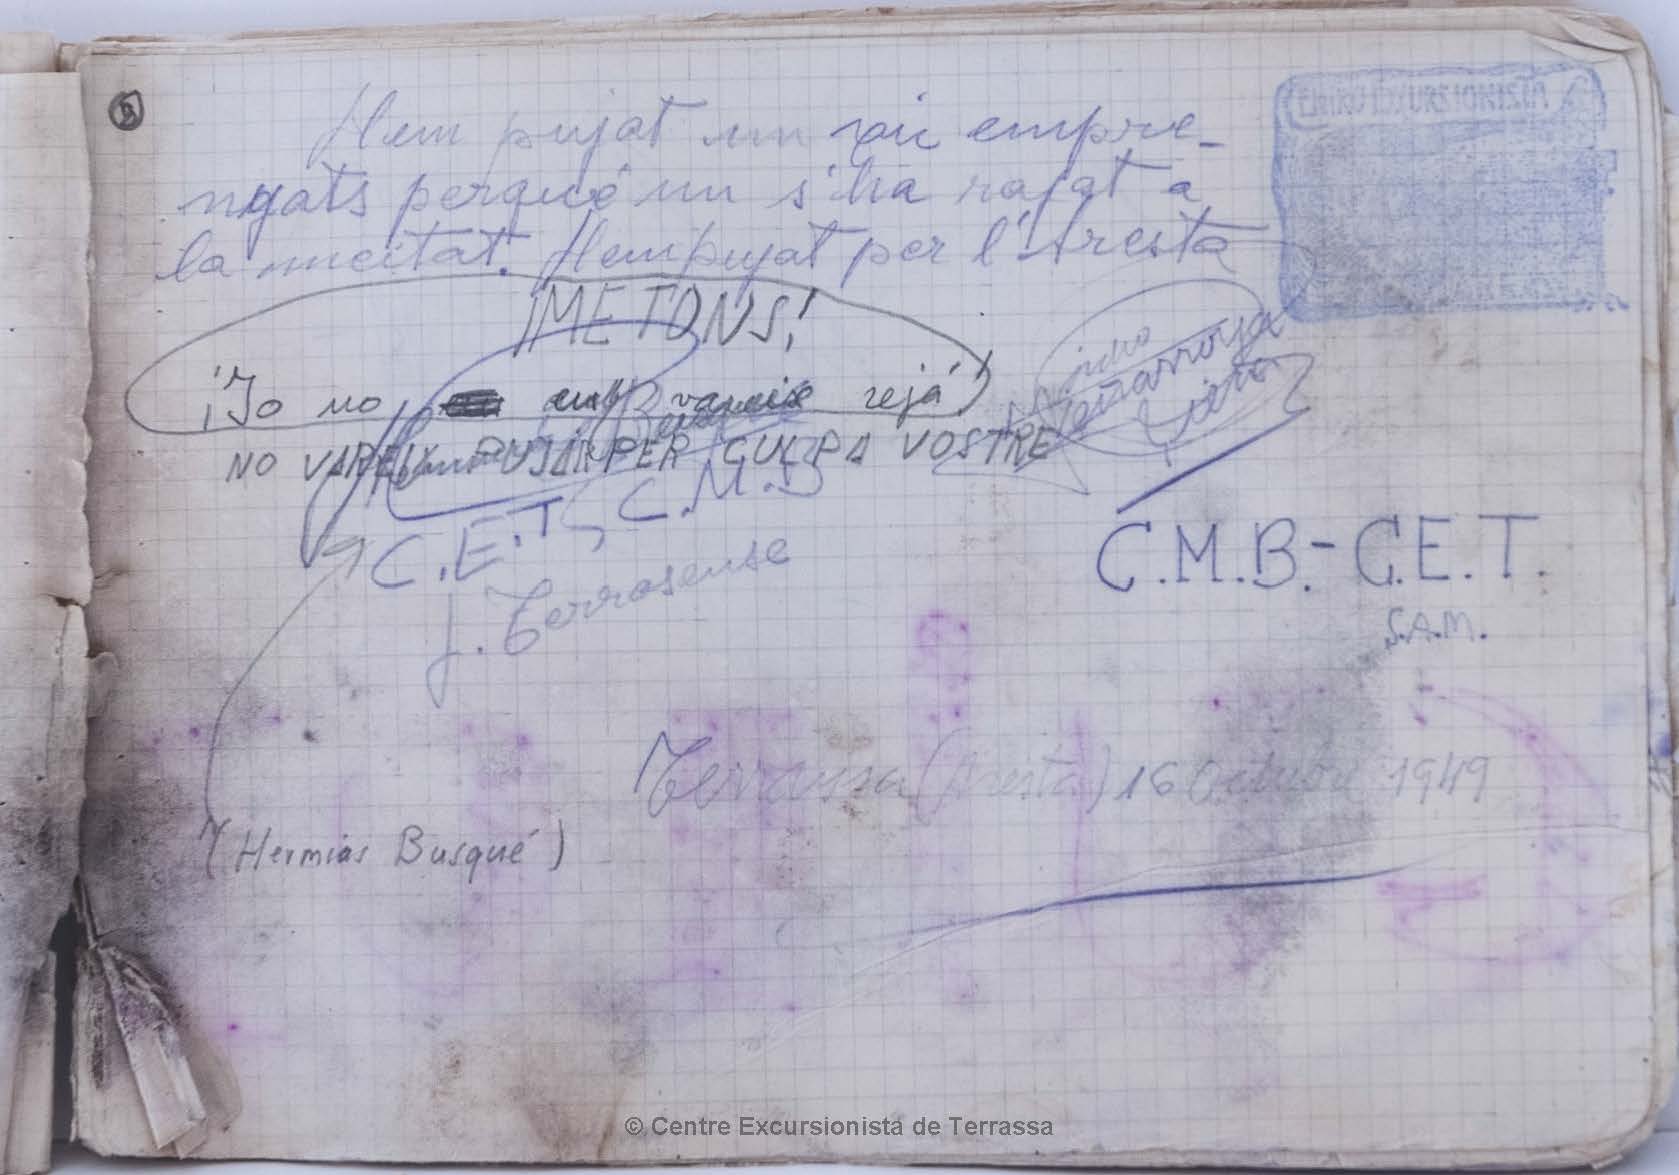 5
Hem pujat un xic empre-
ngats perquè un s'ha rajat a
la meitat. Hem pujat per l'Aresta
CENTRO EXCURSIONISTA
¡METONS!
¡Jo no vareix rejá!
NO VAREIX PUJAR PER CULPA VOSTRE
C.E.T, C.M.B
J. Terrasense
C.M.B.- C.E.T.
S.A.M.
Terrassa (Aresta) 16 Octubre 1949
(Hermias Busqué)
© Centre Excursionista de Terrassa